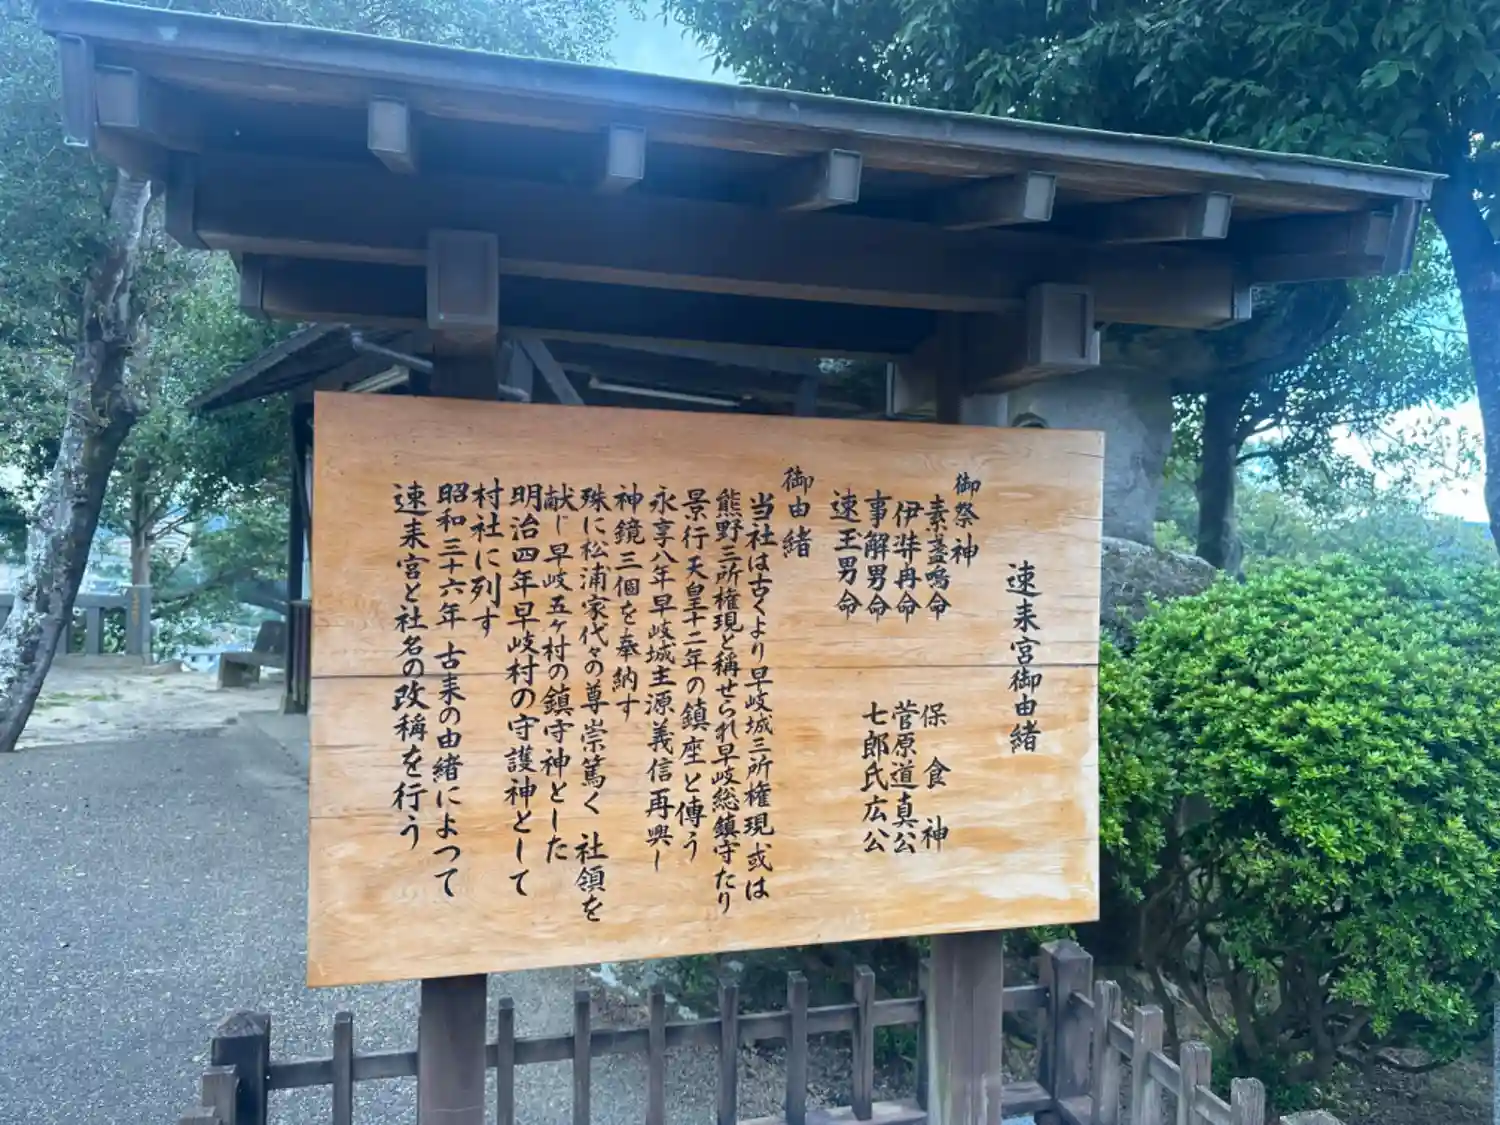 速来宮御由緒
御祭神
素盞嗚命 保食神
伊弉冉命 菅原道真公
事解男命 七郎氏広公
速玉男命
御由緒
当社は古くより早岐城三所権現、或は
熊野三所権現と稱せられ早岐総鎮守たり
景行天皇十二年の鎮座と傳う
永享八年早岐城主源義信再興し
神鏡三個を奉納す
殊に松浦家代々の尊崇篤く 社領を
献じ早岐五ヶ村の鎮守神とした
明治四年早岐村の守護神として
村社に列す
昭和三十六年 古来の由緒によつて
速来宮と社名の改稱を行う